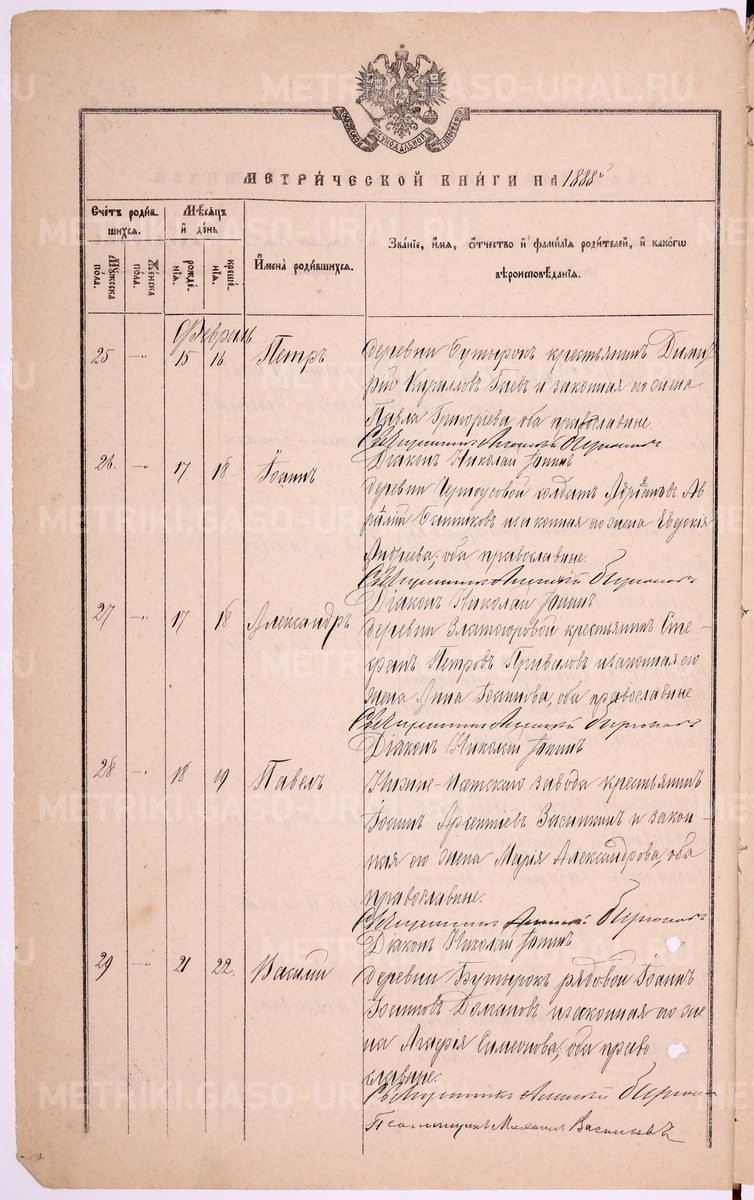 METRIKI.GASO-URAL.RU
МЕТРИ́ЧЕСКОЙ КНИ́ГИ НА 1888й
Счетъ родив-
шихся.
Мужеска
пола.
Же́нска
по́ла.
Мѣ́сяцъ
и҆ де́нь
рожде́-
нїѧ.
креще́-
нїѧ.
И҆мена̀ роди́вшихся.
Зва́нїе, и҆́мя, о҆́тчество и҆ фами́лїя роди́телей, и҆ како́гѡ
вѣроисповѣ́данїѧ.
Февраль
25 -"- 15 16 Петръ
деревни Бутырокъ крестьянинъ Дими-
рій Кириловъ Гаевъ и законная его жена
Павла Григоріева, оба православные.
Священникъ
Діаконъ Николай
26. -"- 17 18. Іоаннъ
деревни Черноусовой солдатъ Адріанъ Ав
и законная его жена Евдокія
Андреева, оба православные.
Священникъ Алексій
Діаконъ Николай
27 -"- 17 18 Александръ
деревни Златогоровой крестьянинъ Сте-
фанъ Петровъ Приваловъ и законная его
жена Анна Іоаннова, оба православные
Священникъ Алексій
Діаконъ Николай
28 -"- 18 19 Павелъ
Нижне-Исетскаго завода крестьянинъ
Іоаннъ Арсентіевъ и закон-
ная его жена Марія Александрова, оба
православные.
Священникъ
Діаконъ Николай
29 -"- 21 22. Василій
деревни Бутырокъ рядовой Іоаннъ
Іоанновъ и законная его же
на Агафія Симеонова, оба право
славные.
Священникъ Алексій
Псаломщикъ Михаилъ Васильевъ